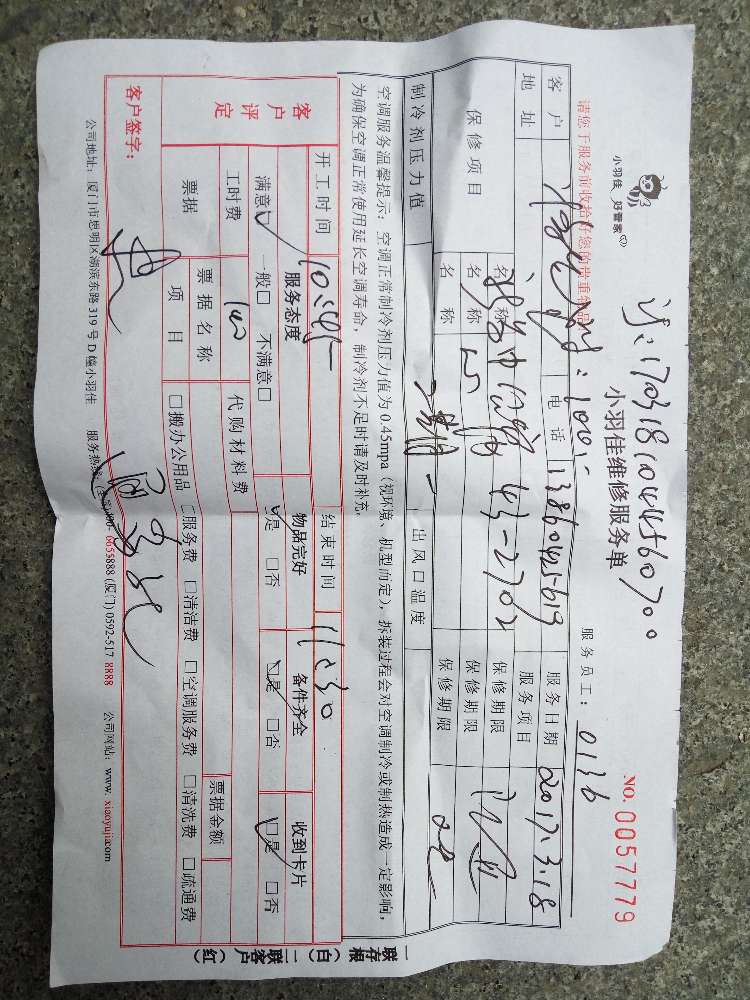 小羽佳 好管家
单:170318104456070。
小羽佳维修服务单
NO. 0057779
请您于服务前收拾好您的贵重物品
服务员工: 0136
客户 电话 13860425619 服务日期 2017.3.18
地址 43-2702 服务项目
保修项目 名称 保修期限
名称 保修期限
名称 保修期限
制冷剂压力值 出风口温度
空调服务温馨提示: 空调正常制冷剂压力值为0.45mpa (视环境、机型而定), 拆装过程会对空调制冷或制热造成一定影响,
为确保空调正常使用延长空调寿命, 制冷剂不足时请及时补充。
开工时间 10:45 结束时间 11:30
客户评定 服务态度 物品完好 备件齐全 收到卡片
满意□ 一般□ 不满意□ □是 □否 □是 □否 □是 □否
工时费 100 代购材料费
票据 票据名称 票据金额
项目 □搬办公用品 □服务费 □清洁费 □空调服务费 □清洗费 □疏通费
客户签字:
公司地址: 厦门市思明区湖滨东路319号D幢小羽佳 服务热线 5888 (厦门) 0592-517 8888 公司网站: www.xiaoyujia.com
一联存根(白) 二联客户(红)